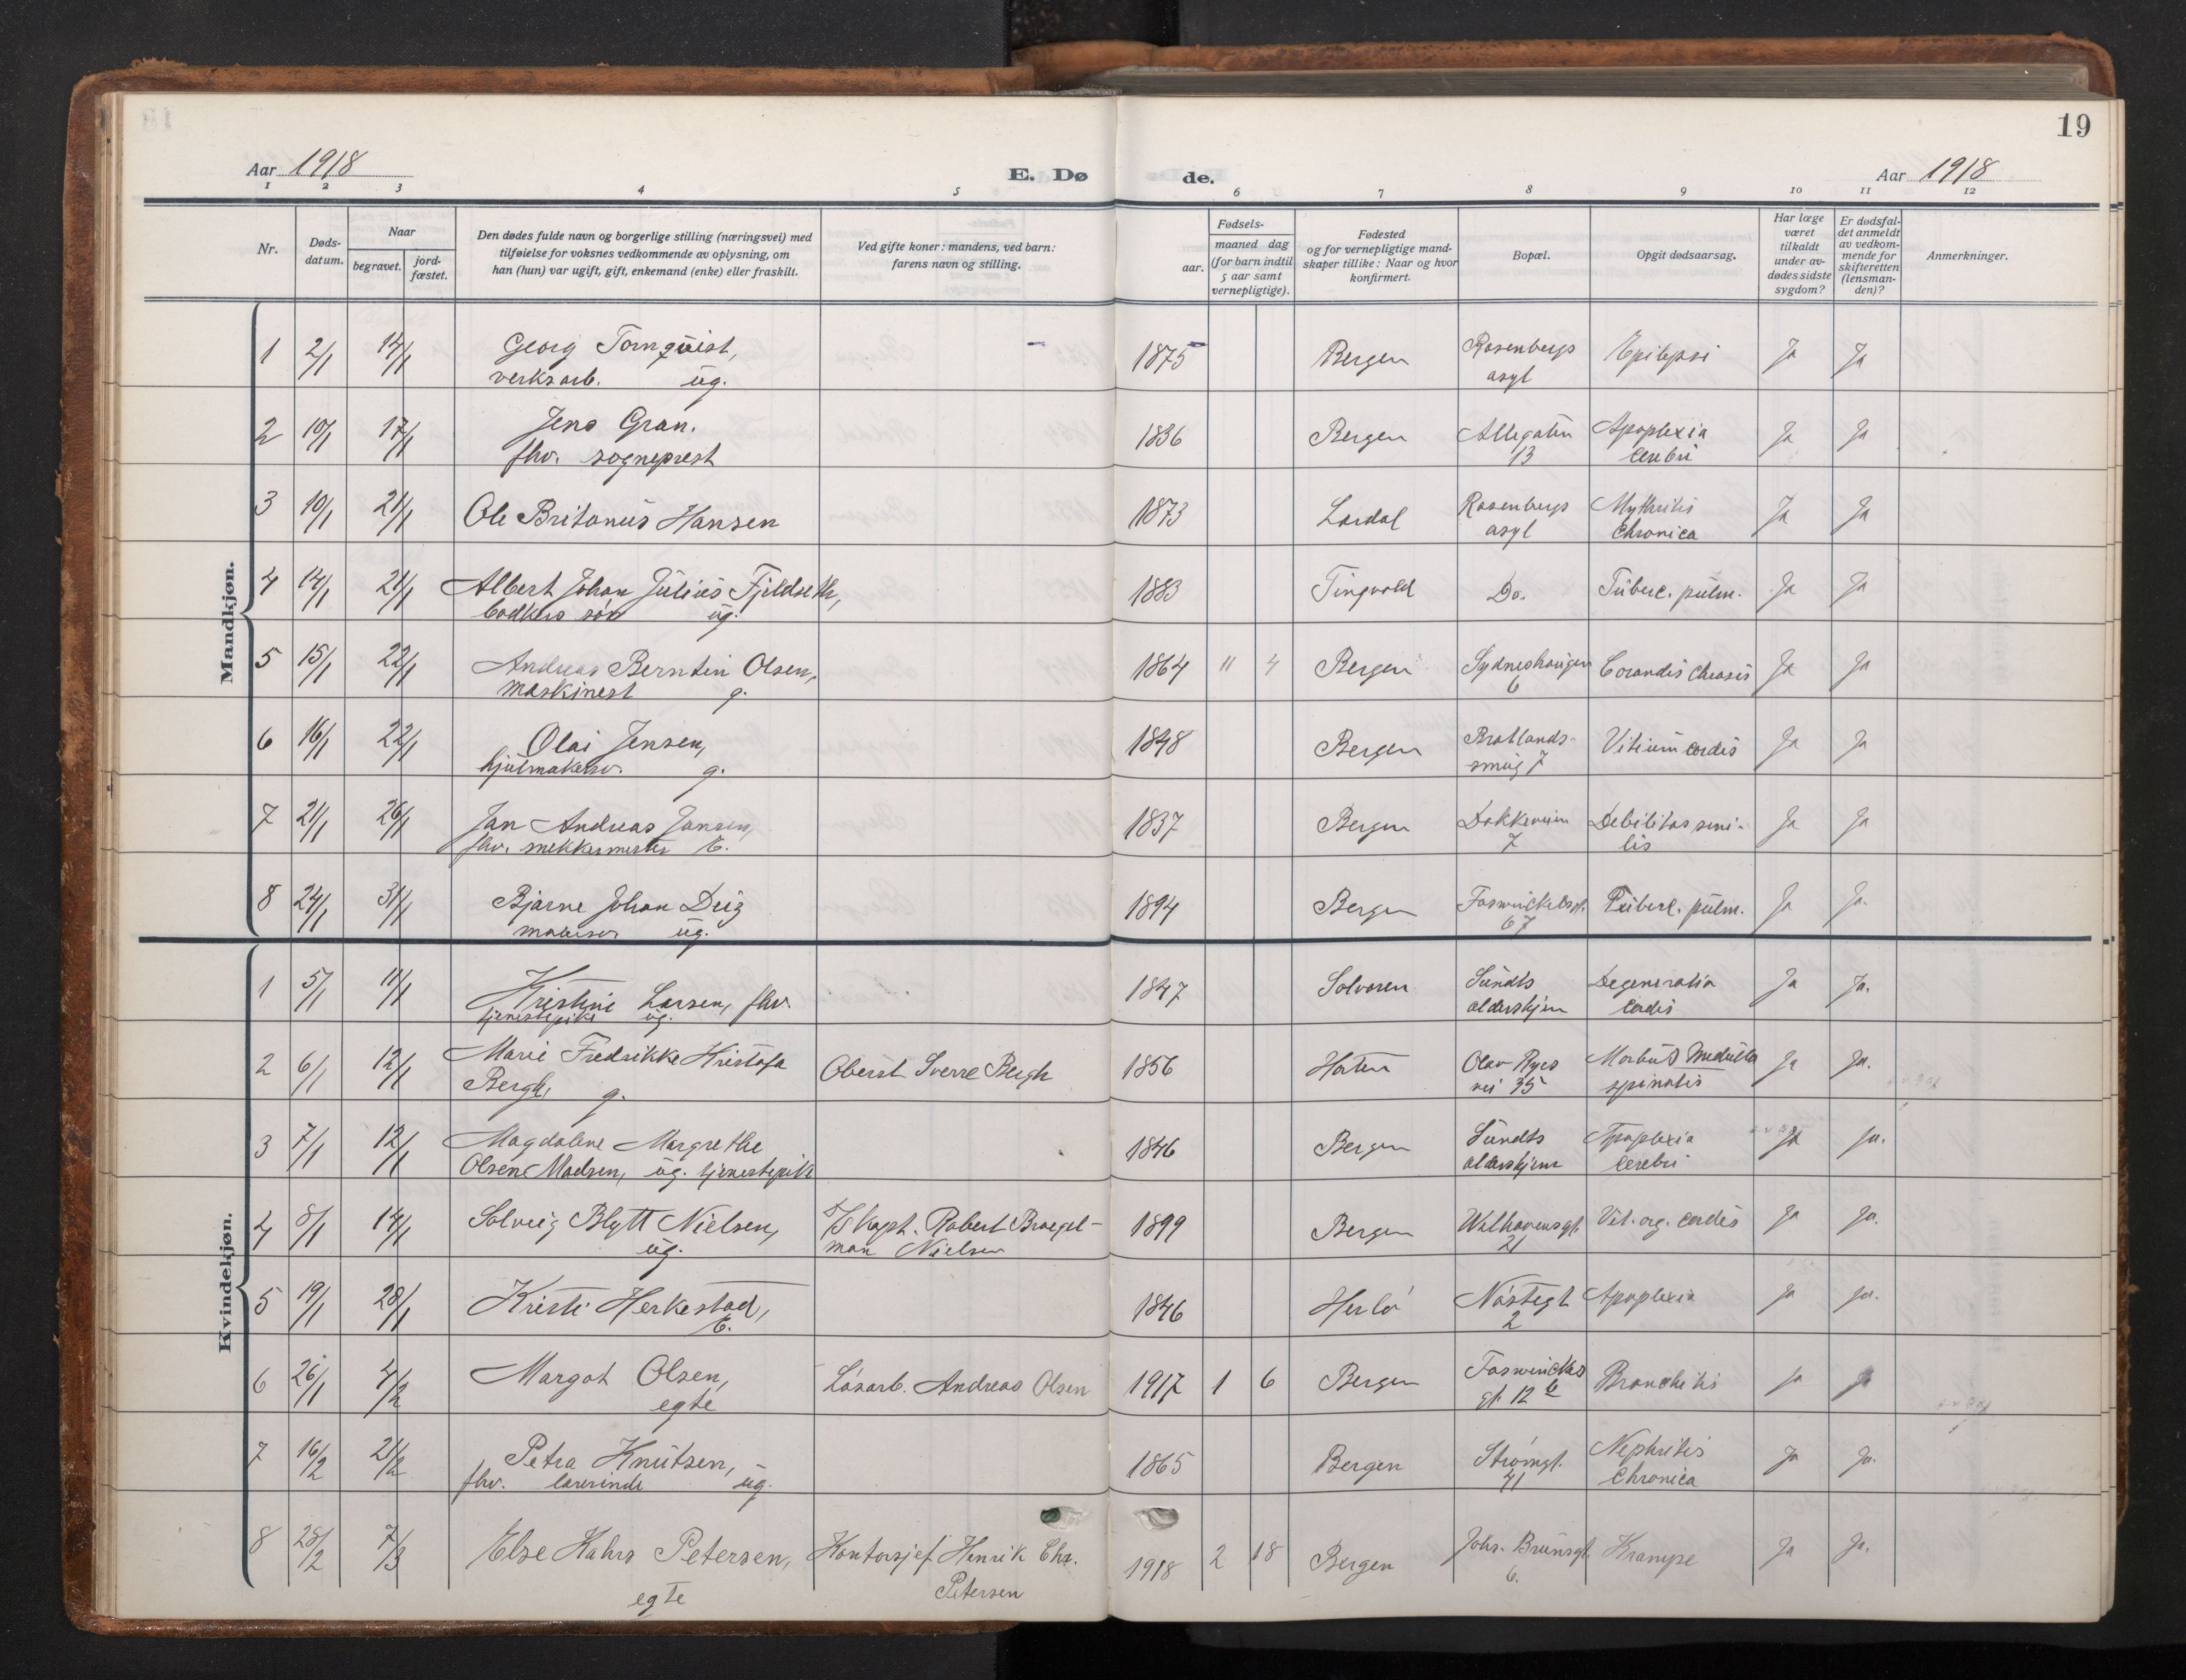 19
Aar 1918
E. Dø
de.
Aar 1918
1 2 3 4 5 6 7 8 9 10 11 12
Nr.
Døds-
datum.
Naar
begravet.
jord-
fæstet.
Den dødes fulde navn og borgerlige stilling (næringsvei) med
tilføielse for voksnes vedkommende av oplysning, om
han (hun) var ugift, gift, enkemand (enke) eller fraskilt.
Ved gifte koner: mandens, ved barn:
farens navn og stilling.
Fødsels-
aar.
maaned dag
(for barn indtil
5 aar samt
vernepligtige).
Fødested
og for vernepligtige mand-
skaper tillike: Naar og hvor
konfirmert.
Bopæl.
Opgit dødsaarsag.
Har læge
været
tilkaldt
under av-
dødes sidste
sygdom?
Er dødsfal-
det anmeldt
av vedkom-
mende for
skifteretten
(lensman-
den)?
Anmerkninger.
Mandkjøn.
1 2/1 14/1 Georg Tornquist, 1875 Bergen Rosenbergs Epilepsi Ja Ja
verksarb. ug. asyl
2 10/1 17/1 Jens Gran. 1836 Bergen Allegaten Apoplexia Ja Ja
fhv. sogneprest 13 cerebri
3 10/1 21/1 Ole Britanus Hansen 1873 Lardal Rosenbergs Ja Ja
asyl Chronica
4 14/1 21/1 Albert Johan Julius Fjeldseth, 1883 Tingvold Do. Tuberc. pulm. Ja Ja
bødkers søn ug.
5 15/1 22/1 Andreas Berntin Olsen, 1864 11 4 Bergen Sydneshaugen Ja Ja
maskinest g. 6
6 16/1 22/1 Olai Jensen, 1848 Bergen Bratlands- Vitium cordis Ja Ja
hjulmakersv. g. smug 7
7 21/1 26/1 Jan Andreas Jansen, 1837 Bergen Dokkeveien Debilitas seni- Ja Ja
fhv. snekkermester E. 7 lis
8 24/1 31/1 Bjarne Johan 1894 Bergen Foswinckelsgt. Tuberc. pulm. Ja Ja.
malersv. ug. 67
Kvindekjøn.
1 5/1 11/1 Kristine Larsen, fhv. 1847 Solvoren Sundts Degeneratio Ja Ja.
tjenestepike ug. aldershjem cordis
2 6/1 12/1 Marie Fredrikke Kristofa Oberst Sverre Bergh 1856 Horten Olav Ryes Morbus medulla Ja Ja.
Bergh, g. vei 35 spinalis
3 7/1 12/1 Magdalene Margrethe 1846 Bergen Sundts Apoplexia Ja Ja.
Olsen Madsen, ug. tjenestepike aldershjem cerebri
4 8/1 14/1 Solveig Blytt Nielsen, S/S kapt. Robert Broegel- 1899 Bergen Welhavensgt. Vit. org. cordis Ja Ja.
ug. man Nielsen 21
5 19/1 28/1 Kristi Herkestad, 1846 Herlø Nøstegt Apoplexia Ja Ja.
E. 2
6 26/1 4/2 Margot Olsen, Løsarb. Andreas Olsen 1917 1 6 Bergen Foswinckels Bronchitis Ja Ja
egte gt. 12 b
7 16/2 21/2 Petra Knutsen, 1865 Bergen Strømgt. Nephritis Ja Ja.
fhv. lærerinde ug. 41 Chronica
8 28/2 7/3 Else Kahrs Petersen, Kontorsjef Henrik Chr. 1918 2 18 Bergen Johs. Brunsgt. Krampe Ja Ja.
egte Petersen 6.